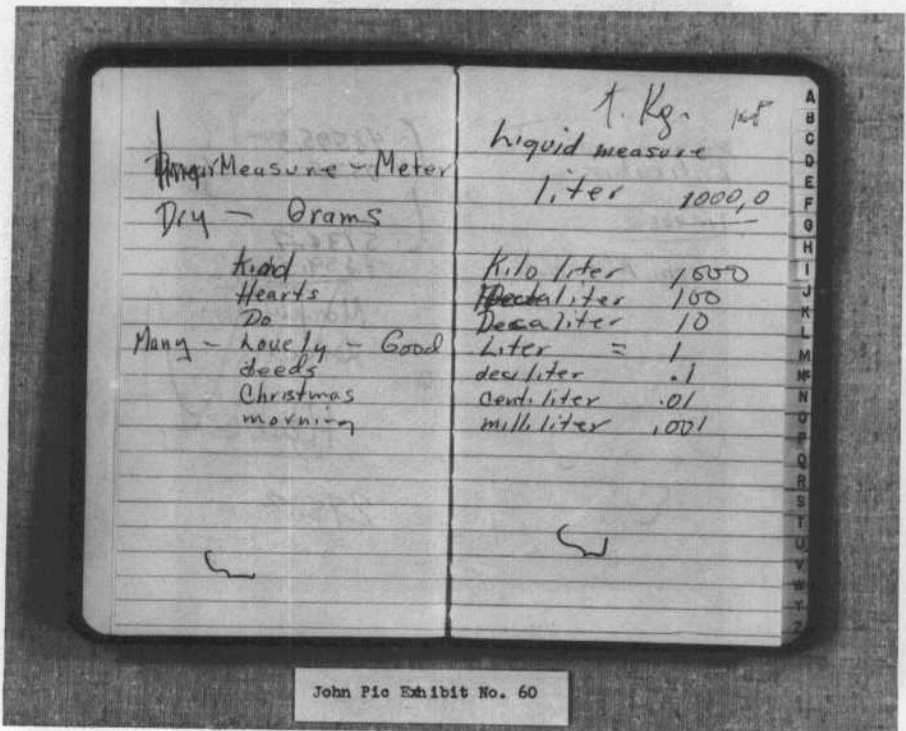 Linear Measure - Meter
Dry - Grams
Kind
Hearts
Do
Many - Lovely - Good
deeds
Christmas
morning
1. Kg.
Liquid measure
liter 1000,0
Kilo liter 1,000
liter 100
Decaliter 10
Liter = 1
desiliter .1
centiliter .01
milliliter .001
A
B
C
D
E
F
G
H
I
J
K
L
M
Mc
N
O
P
Q
R
S
T
U
V
W
Y
Z
John Pic Exhibit No. 60